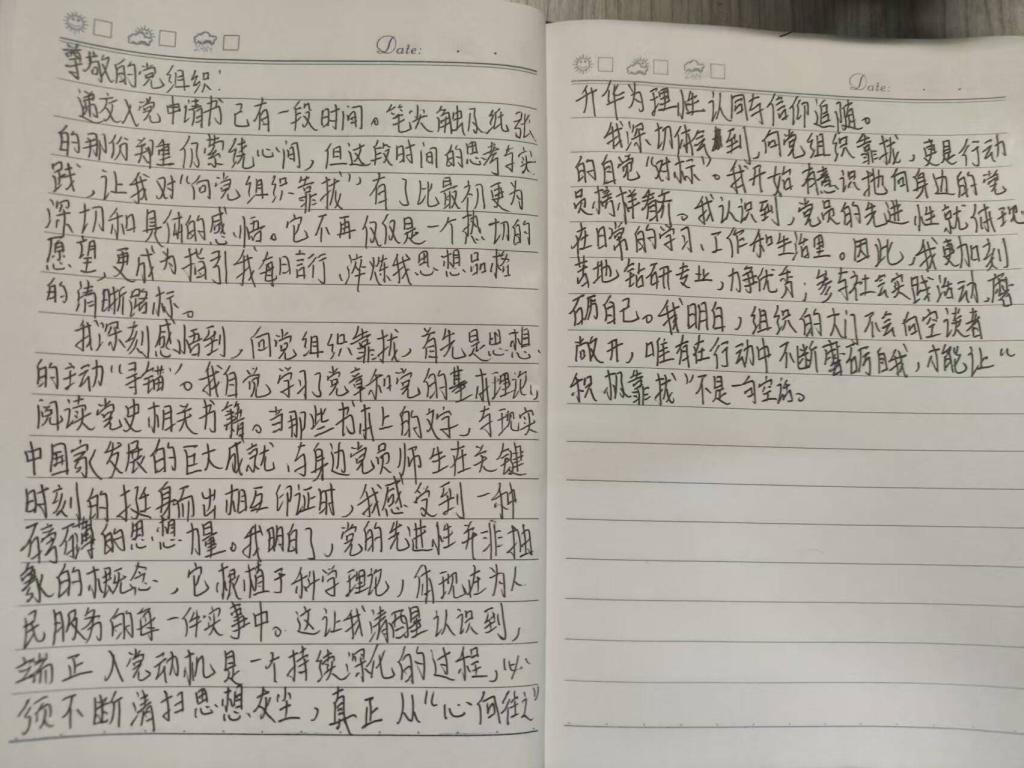 Date:
尊敬的党组织：
递交入党申请书已有一段时间。笔尖触及纸张
的那份郑重仍萦绕心间，但这段时间的思考与实
践，让我对“向党组织靠拢”有了比最初更为
深切和具体的感悟。它不再仅仅是一个热切的
愿望，更成为指引我每日言行、淬炼我思想品格
的清晰路标。
我深刻感悟到，向党组织靠拢，首先是思想
的主动“寻锚”。我自觉学习了党章和党的基本理论，
阅读党史相关书籍。当那些书本上的文字，与现实
中国家发展的巨大成就、与身边党员师生在关键
时刻的挺身而出相互印证时，我感受到一种
磅礴的思想力量。我明白了，党的先进性并非抽
象的概念，它根植于科学理论，体现在为人
民服务的每一件实事中。这让我清醒认识到，
端正入党动机是一个持续深化的过程，必
须不断清扫思想灰尘，真正从“心向往之”
Date:
升华为理性认同与信仰追随。
我深切体会到，向党组织靠拢，更是行动
的自觉“对标”。我开始有意识地向身边的党
员榜样看齐。我认识到，党员的先进性就体现
在日常的学习、工作和生活里。因此，我更加刻
苦地钻研专业，力争优秀；参与社会实践活动，磨
砺自己。我明白，组织的大门不会向空谈者
敞开，唯有在行动中不断磨砺自我，才能让“
积极靠拢”不是一句空话。